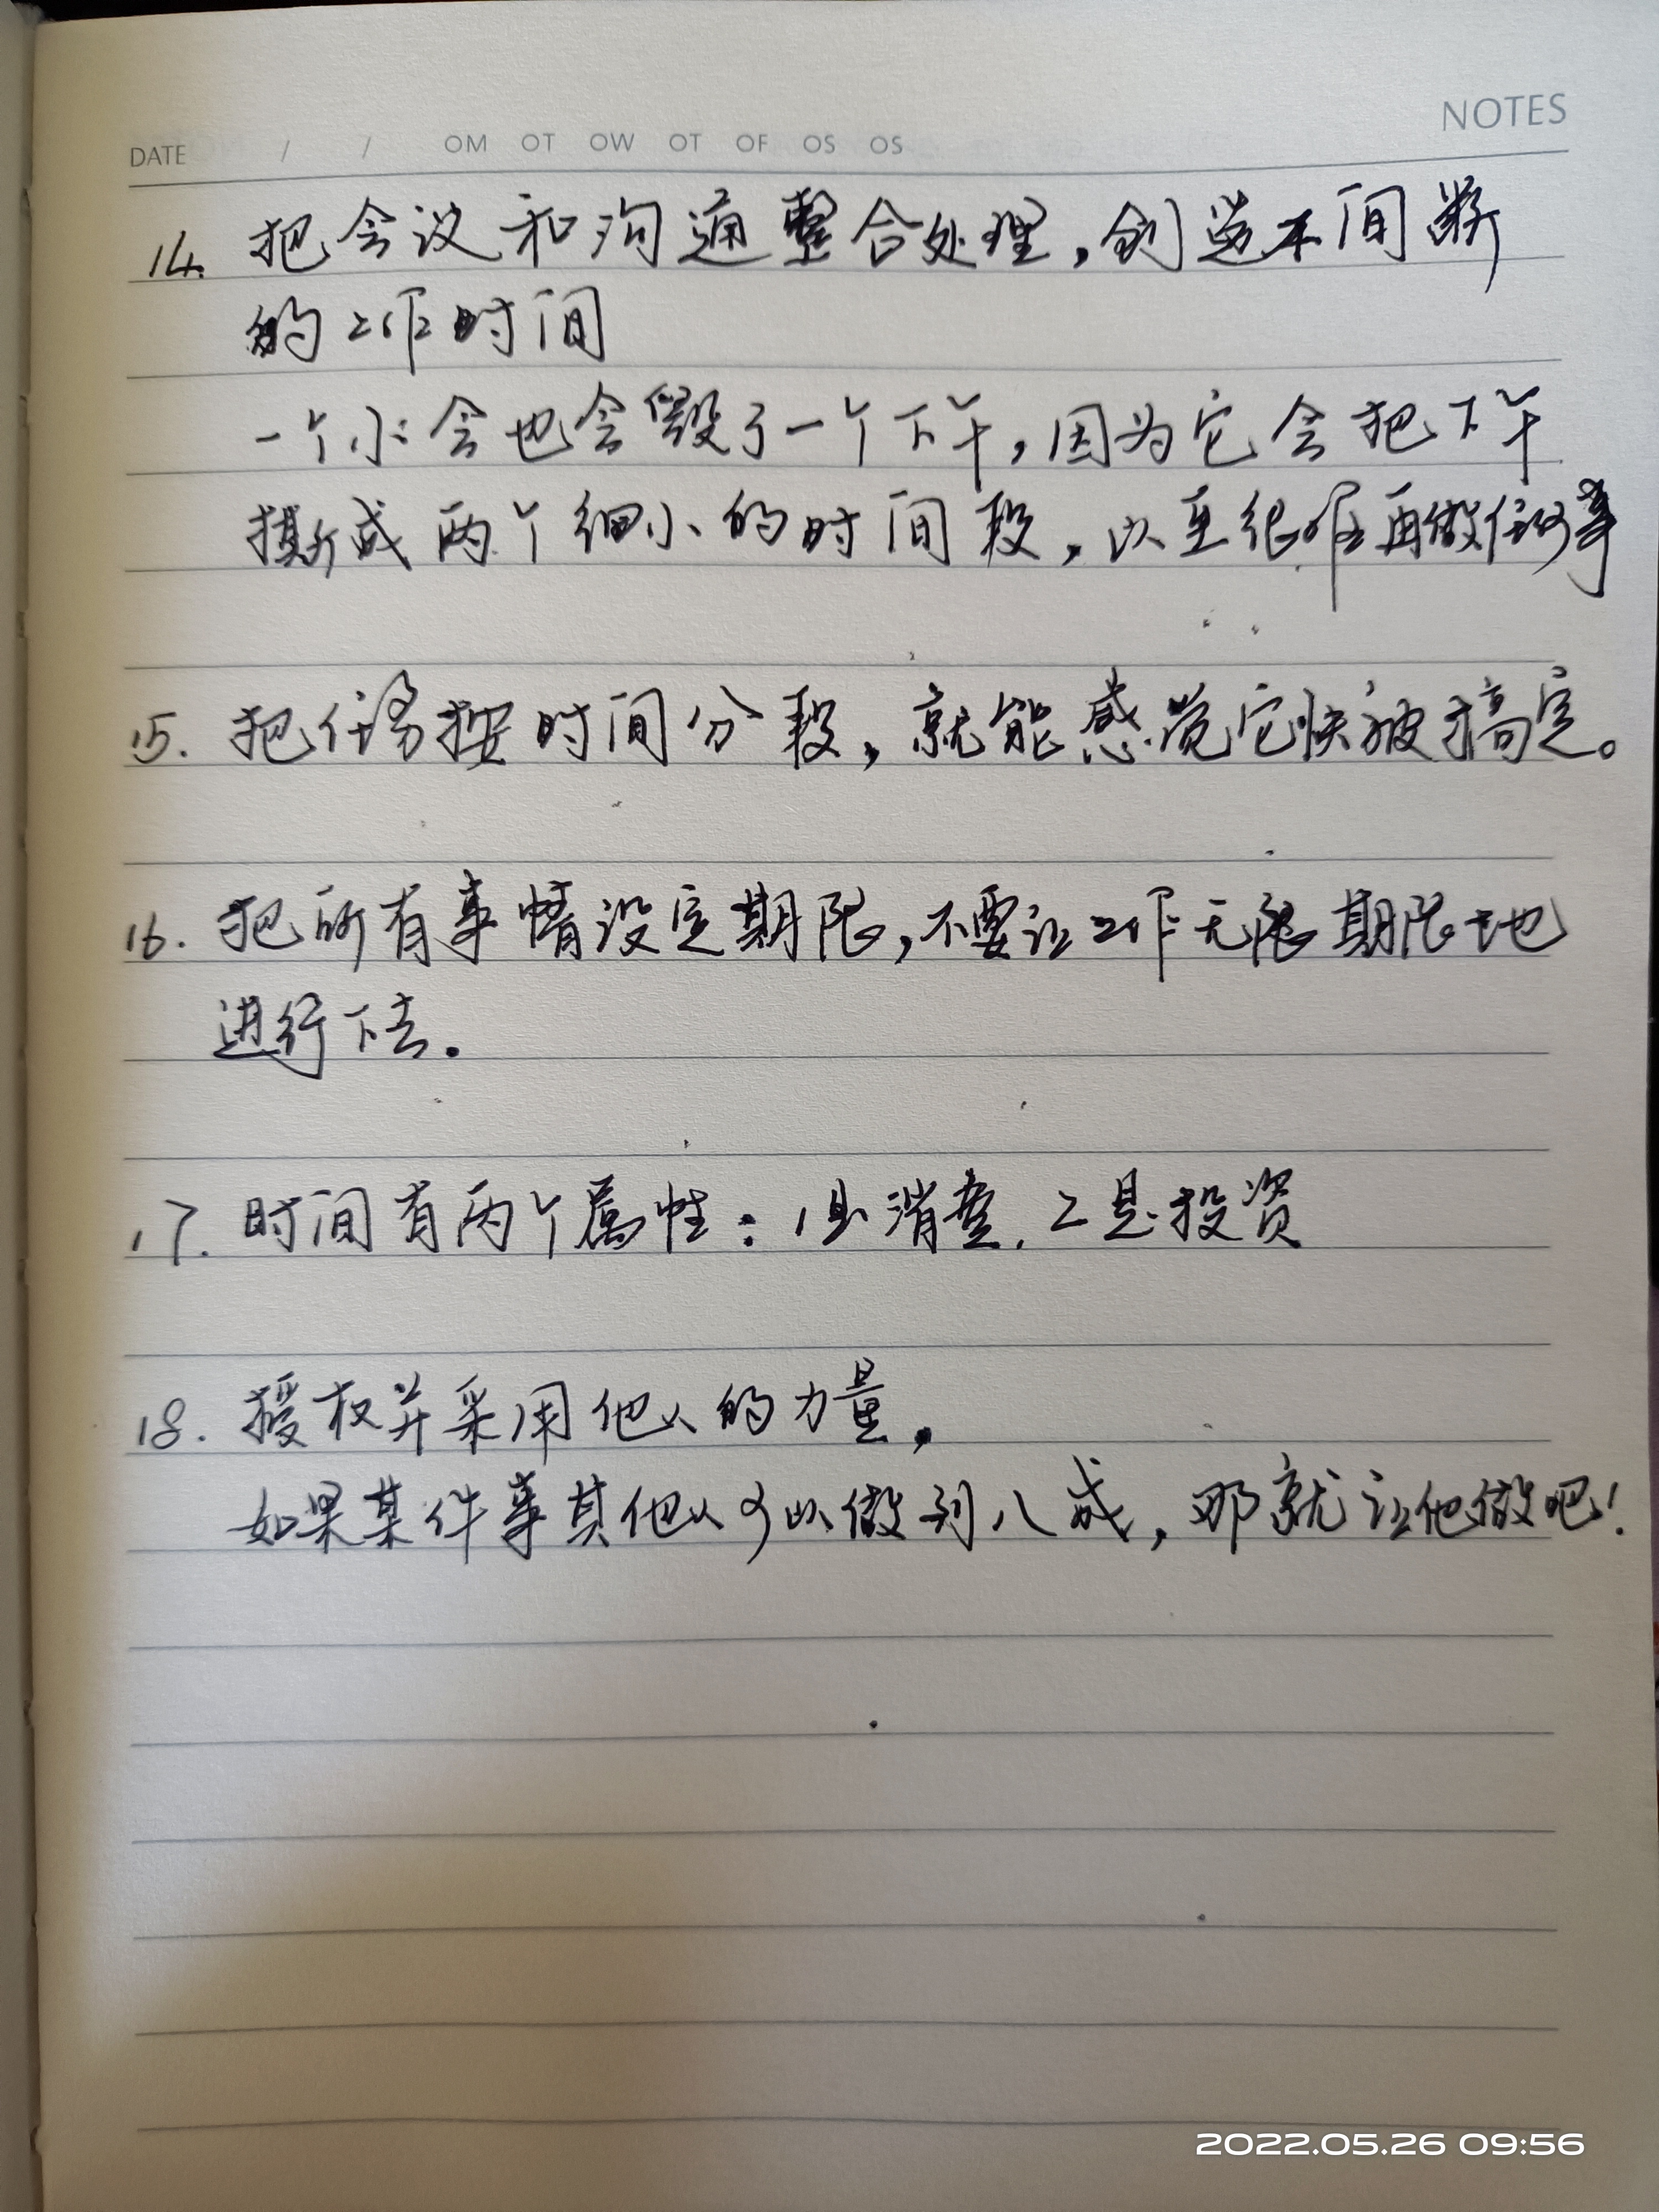 NOTES
DATE / / OM OT OW OT OF OS OS
14. 把会议和沟通整合处理，创造不间断
的工作时间
一个小会也会毁了一个下午，因为它会把下午
撕成两个细小的时间段，以至很难再做任何事
15. 把任务按时间分段，就能感觉它快被搞定。
16. 把所有事情设定期限，不要让工作无限期限地
进行下去.
17. 时间有两个属性：1是消费. 2是投资
18. 授权并采用他人的力量，
如果某件事其他人可以做到八成，那就让他做吧！
2022.05.26 09:56